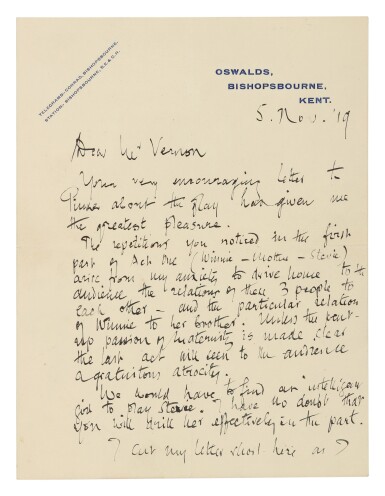 TELEGRAMS:- CONRAD, BISHOPSBOURNE.
STATION:- BISHOPSBOURNE, S.E. & C.R.
OSWALDS,
BISHOPSBOURNE,
KENT.
5. Nov. '19
Dear Mr Vernon
Your very encouraging letter to
Pinker about the play has given me
the greatest pleasure.
The repetitions you noticed in the first
part of Act One (Winnie – Mother – Stevie)
arise from my anxiety to drive home to the
audience the relations of these 3 people to
each other – and the particular relation
of Winnie to her brother. Unless the pent-
up passion of maternity is made clear
the last act will seem to the audience
a gratuitous atrocity.
We would have to find an intelligent
girl to play Stevie. I have no doubt that
you will drill her effectively in the part.
I cut my letter short here as I